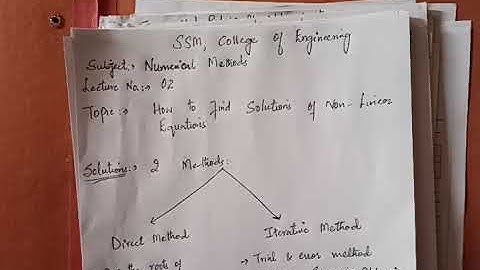 SSM, College of Engineering
Subject:- Numerical Methods
Lecture No:- 02
Topic:→ How to Find Solutions of Non-Linear
Equations
Solutions:- 2 Methods:
Direct Method Iterative Method
the roots of → Trial & error method